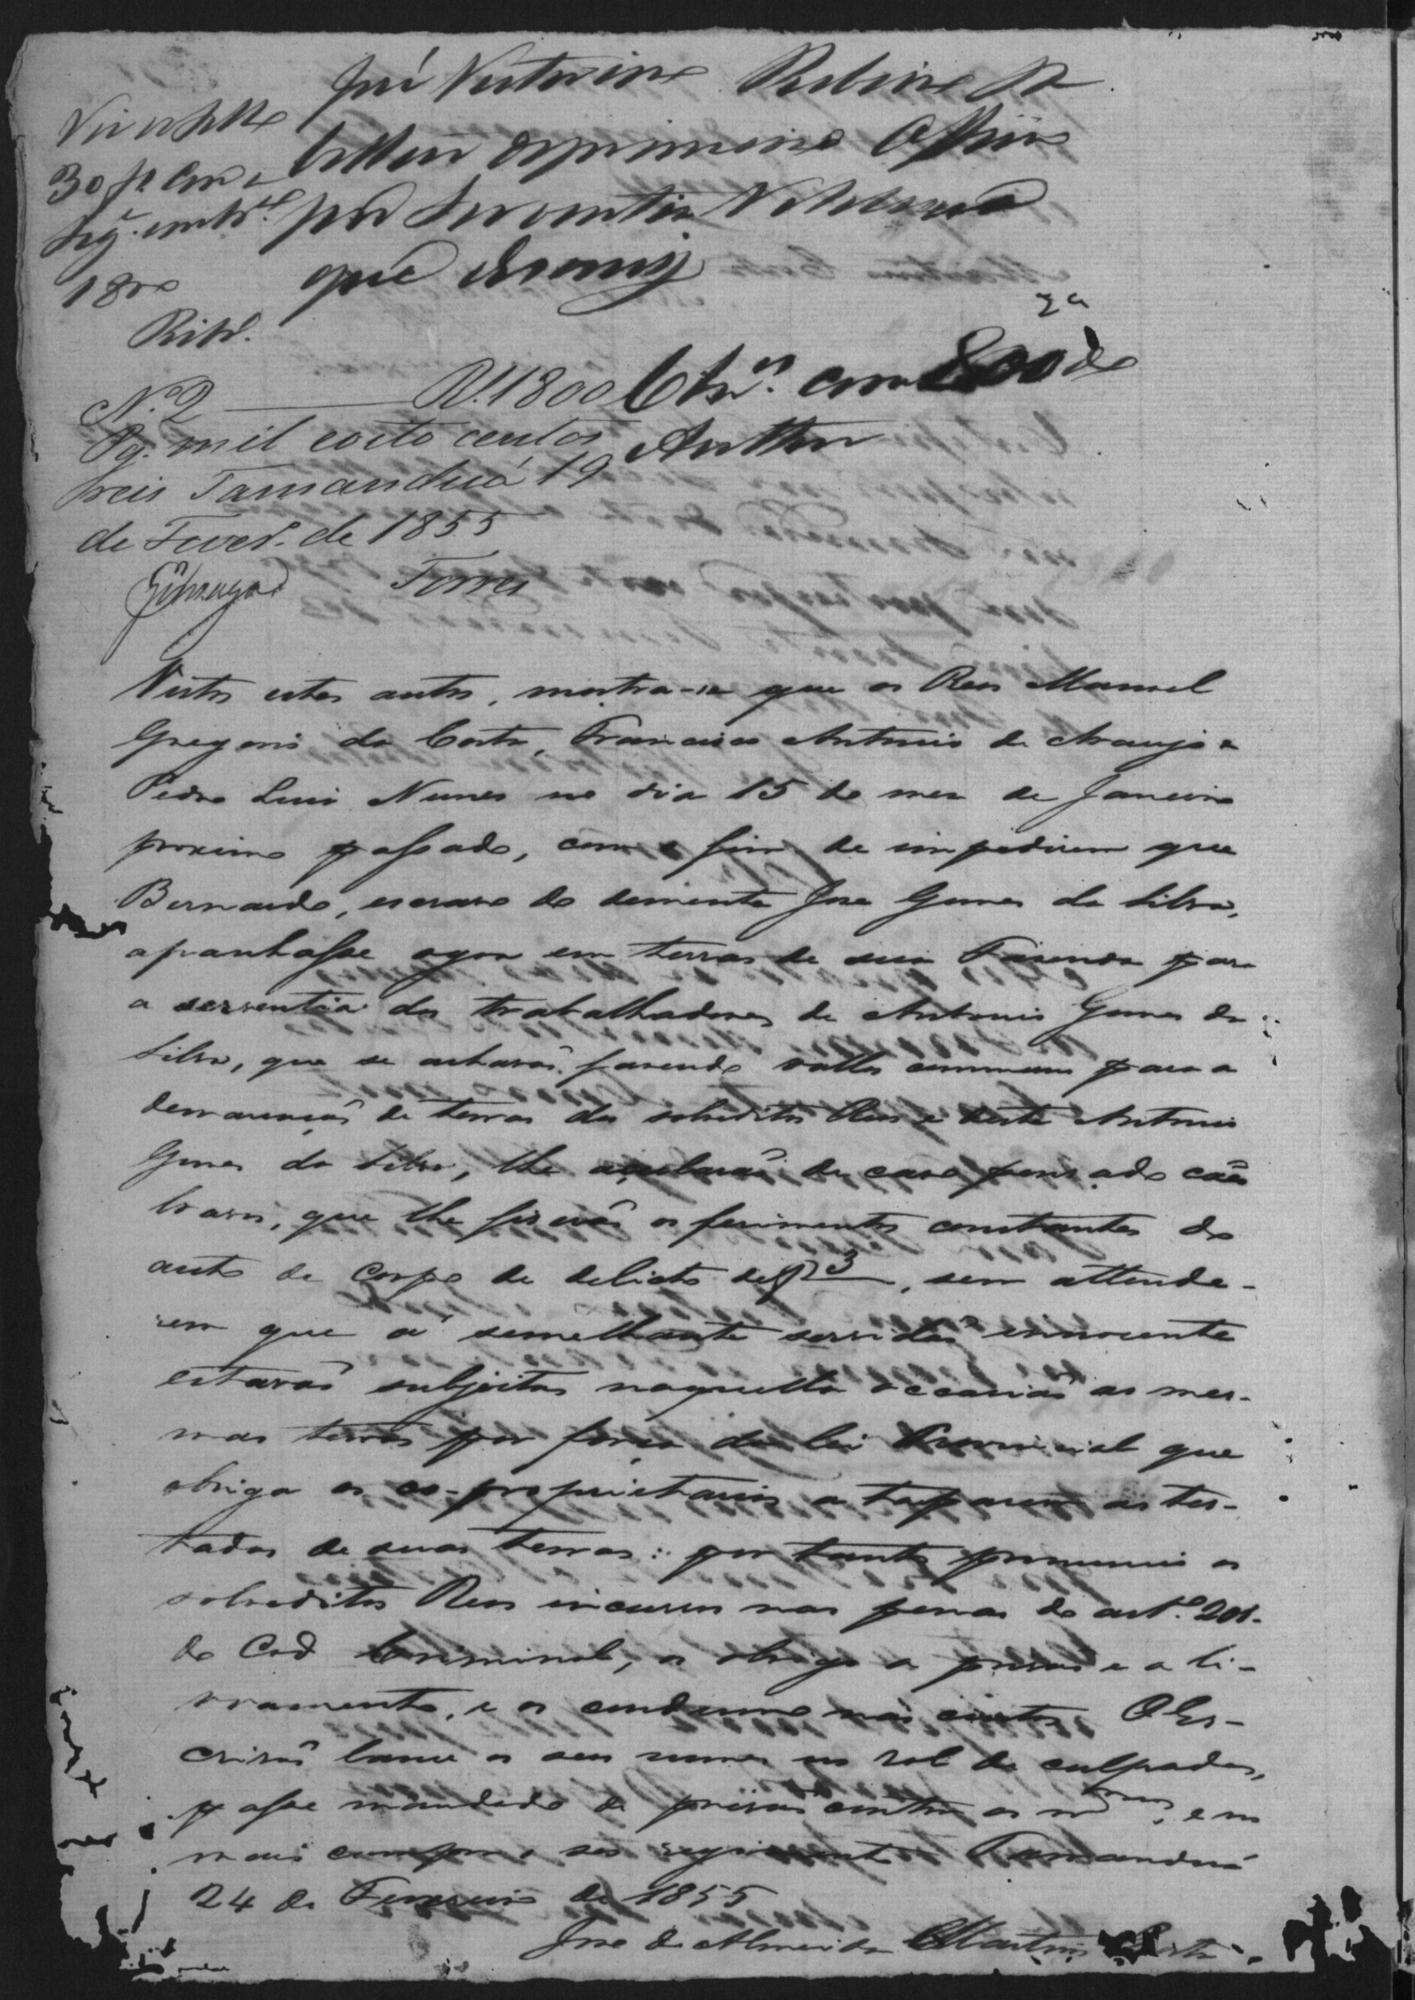 José Victorino
primeiro
por Serventia Vitalicia
que escrevy
30 f
1800
N.º 2 R.s 1800
Pg. mil e oito centos
reis Tamanduá 19
de Fever.º de 1855
Torres
Vistos estes autos, mostra-se que os Reos Manoel
Gregorio da Costa, Francisco Antonio de Araujo e
Pedro Luis Nunes no dia 15 do mez de Janeiro
proximo passado, com o fim de impedirem que
Bernardo, escravo do demente José Gomes da Silva,
apanhasse agoa em terras de sua Fazenda para
a serventia dos trabalhadores de Antonio Gomes da
Silva, que se achavão fazendo vallos communs para a
demarcação de terras dos sobreditos Reos e deste Antonio
Gomes da Silva, lhe açularão de caso pensado cães
bravos, que lhe fizerão os ferimentos constantes do
auto de corpo de delicto de f 3, sem attende-
rem que a semelhante servidão innocente
estavão subjeitas naquella occasião as mes-
mas terras por força da lei Provincial que
obriga os co-proprietarios a taparem as tes-
tadas de suas terras: por tanto pronuncio os
sobreditos Reos incursos nas penas do art.º 201.
do Cod Criminal, os obrigo a prisão e a li-
vramento, e os condemno nas custas. O Es-
crivão lance os seus nomes no rol de culpados,
passe mandado de prisão contra os m.mos, e no
mais cumpra o seo regimento. Tamanduá
24 de Fevereiro de 1855
José de Almeida Martins Costa.